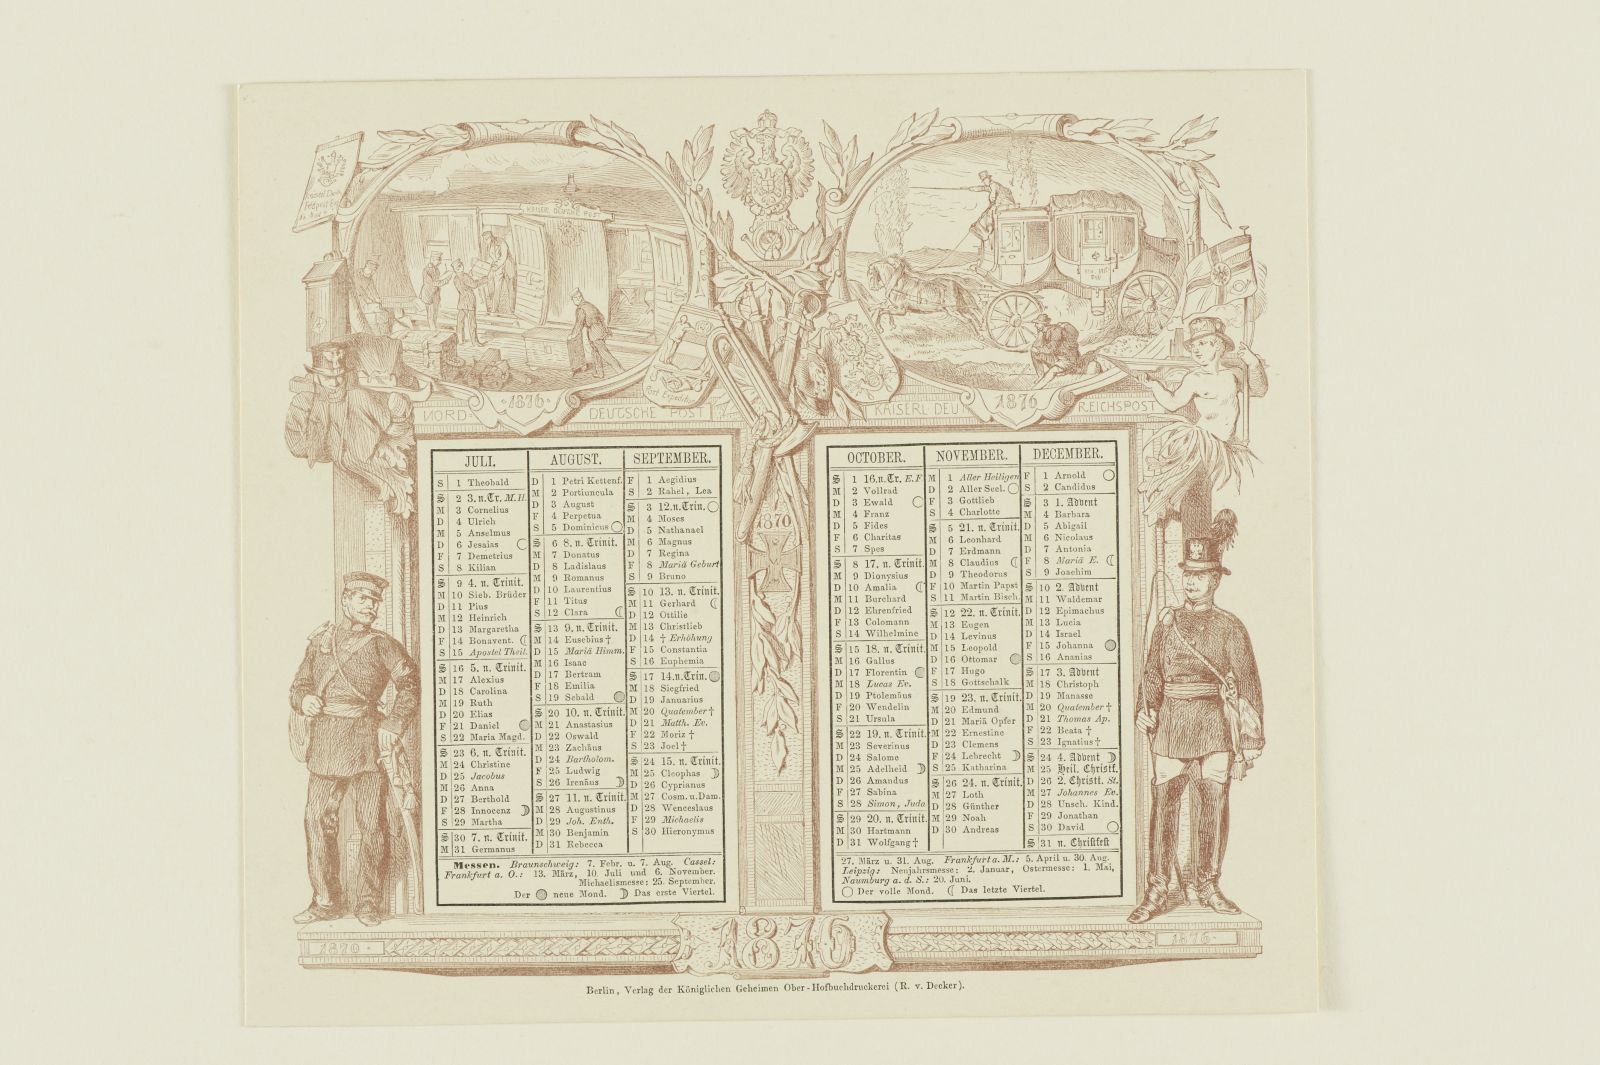 Kaiserl. Deut.
Feldpost Ex
KAISERL. DEUTSCHE POST
1876
NORD-
DEUTSCHE POST
Post Expedition
KAISERL DEUT
1876
REICHSPOST
1870
JULI.
S 1 Theobald
S 2 3. n. Tr. M. H.
M 3 Cornelius
D 4 Ulrich
M 5 Anselmus
D 6 Jesaias
F 7 Demetrius
S 8 Kilian
S 9 4. n. Trinit.
M 10 Sieb. Brüder
D 11 Pius
M 12 Heinrich
D 13 Margaretha
F 14 Bonavent.
S 15 Apostel Theil.
S 16 5. n. Trinit.
M 17 Alexius
D 18 Carolina
M 19 Ruth
D 20 Elias
F 21 Daniel
S 22 Maria Magd.
S 23 6. n. Trinit.
M 24 Christine
D 25 Jacobus
M 26 Anna
D 27 Berthold
F 28 Innocenz
S 29 Martha
S 30 7. n. Trinit.
M 31 Germanus
AUGUST.
D 1 Petri Kettenf.
M 2 Portiuncula
D 3 August
F 4 Perpetua
S 5 Dominicus
S 6 8. n. Trinit.
M 7 Donatus
D 8 Ladislaus
M 9 Romanus
D 10 Laurentius
F 11 Titus
S 12 Clara
S 13 9. n. Trinit.
M 14 Eusebius †
D 15 Mariä Himm.
M 16 Isaac
D 17 Bertram
F 18 Emilia
S 19 Sebald
S 20 10. n. Trinit.
M 21 Anastasius
D 22 Oswald
M 23 Zachäus
D 24 Bartholom.
F 25 Ludwig
S 26 Irenäus
S 27 11. n. Trinit.
M 28 Augustinus
D 29 Joh. Enth.
M 30 Benjamin
D 31 Rebecca
SEPTEMBER.
F 1 Aegidius
S 2 Rahel, Lea
S 3 12. n. Trin.
M 4 Moses
D 5 Nathanael
M 6 Magnus
D 7 Regina
F 8 Mariä Geburt
S 9 Bruno
S 10 13. n. Trinit.
M 11 Gerhard
D 12 Ottilie
M 13 Christlieb
D 14 † Erhöhung
F 15 Constantia
S 16 Euphemia
S 17 14. n. Trin.
M 18 Siegfried
D 19 Januarius
M 20 Quatember †
D 21 Matth. Ev.
F 22 Moriz †
S 23 Joel †
S 24 15. n. Trinit.
M 25 Cleophas
D 26 Cyprianus
M 27 Cosm. u. Dam.
D 28 Wenceslaus
F 29 Michaelis
S 30 Hieronymus
Messen. Braunschweig: 7. Febr. u. 7. Aug. Cassel:
Frankfurt a. O.: 13. März, 10. Juli und 6. November.
Michaelismesse: 25. September.
Der neue Mond. Das erste Viertel.
OCTOBER.
S 1 16. n. Tr. E. F.
M 2 Vollrad
D 3 Ewald
M 4 Franz
D 5 Fides
F 6 Charitas
S 7 Spes
S 8 17. n. Trinit.
M 9 Dionysius
D 10 Amalia
M 11 Burchard
D 12 Ehrenfried
F 13 Colomann
S 14 Wilhelmine
S 15 18. n. Trinit.
M 16 Gallus
D 17 Florentin
M 18 Lucas Ev.
D 19 Ptolemäus
F 20 Wendelin
S 21 Ursula
S 22 19. n. Trinit.
M 23 Severinus
D 24 Salome
M 25 Adelheid
D 26 Amandus
F 27 Sabina
S 28 Simon, Juda
S 29 20. n. Trinit.
M 30 Hartmann
D 31 Wolfgang †
NOVEMBER.
M 1 Aller Heiligen
D 2 Aller Seel.
F 3 Gottlieb
S 4 Charlotte
S 5 21. n. Trinit.
M 6 Leonhard
D 7 Erdmann
M 8 Claudius
D 9 Theodorus
F 10 Martin Papst
S 11 Martin Bisch.
S 12 22. n. Trinit.
M 13 Eugen
D 14 Levinus
M 15 Leopold
D 16 Ottomar
F 17 Hugo
S 18 Gottschalk
S 19 23. n. Trinit.
M 20 Edmund
D 21 Mariä Opfer
M 22 Ernestine
D 23 Clemens
F 24 Lebrecht
S 25 Katharina
S 26 24. n. Trinit.
M 27 Loth
D 28 Günther
M 29 Noah
D 30 Andreas
DECEMBER.
F 1 Arnold
S 2 Candidus
S 3 1. Advent
M 4 Barbara
D 5 Abigail
M 6 Nicolaus
D 7 Antonia
F 8 Mariä E.
S 9 Joachim
S 10 2. Advent
M 11 Waldemar
D 12 Epimachus
M 13 Lucia
D 14 Israel
F 15 Johanna
S 16 Ananias
S 17 3. Advent
M 18 Christoph
D 19 Manasse
M 20 Quatember †
D 21 Thomas Ap.
F 22 Beata †
S 23 Ignatius †
S 24 4. Advent
M 25 Heil. Christf.
D 26 2. Christt. St.
M 27 Johannes Ev.
D 28 Unsch. Kind.
F 29 Jonathan
S 30 David
S 31 n. Christfest
27. März u. 31. Aug. Frankfurt a. M.: 5. April u. 30. Aug.
Leipzig: Neujahrsmesse: 2. Januar, Ostermesse: 1. Mai,
Naumburg a. d. S.: 20. Juni.
Der volle Mond. Das letzte Viertel.
1870
1876
1876
Berlin, Verlag der Königlichen Geheimen Ober-Hofbuchdruckerei (R. v. Decker).